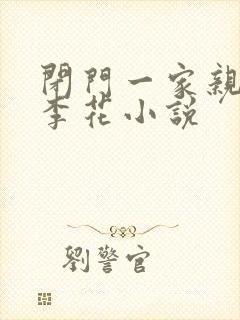 閉門一家親
李花小說
劉警官